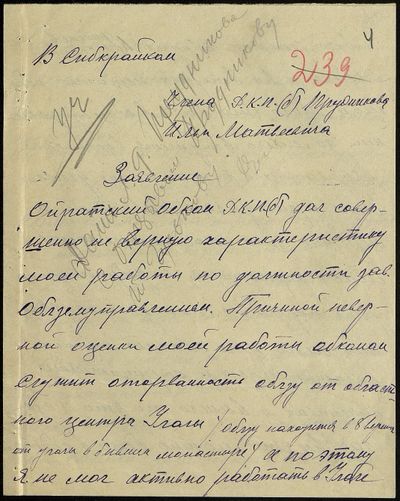 4
В Сибкрайком
239
Члена В.К.П.(б) Прудникова
Ильи Матвеевича
Заявление
Ойратский обком В.К.П.(б) дал совер-
шенно не верную характеристику
моей работы по должности зав.
Облземуправлением. Причиной невер-
ной оценки моей работы обкомом
служит оторванность облзу от област-
ного центра Улалы /облзу находится в 8 верстах
от улалы в бывшем монастыре/ а поэтому
я не мог активно работать в Улале